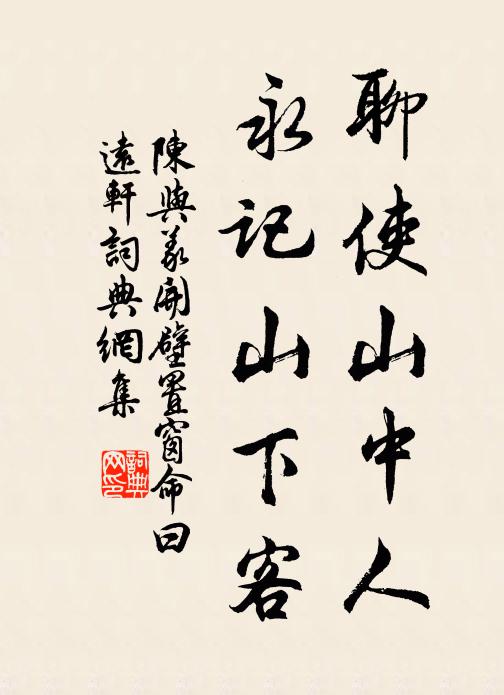 聊使山中人
永記山下客
陳與義開壁置窗命曰
遠軒詞典網集
詞典
网印